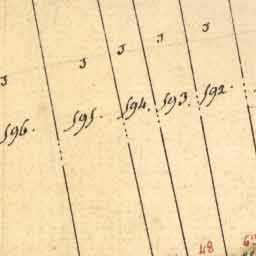 J J J J J
596. 595. 594. 593. 592.
48